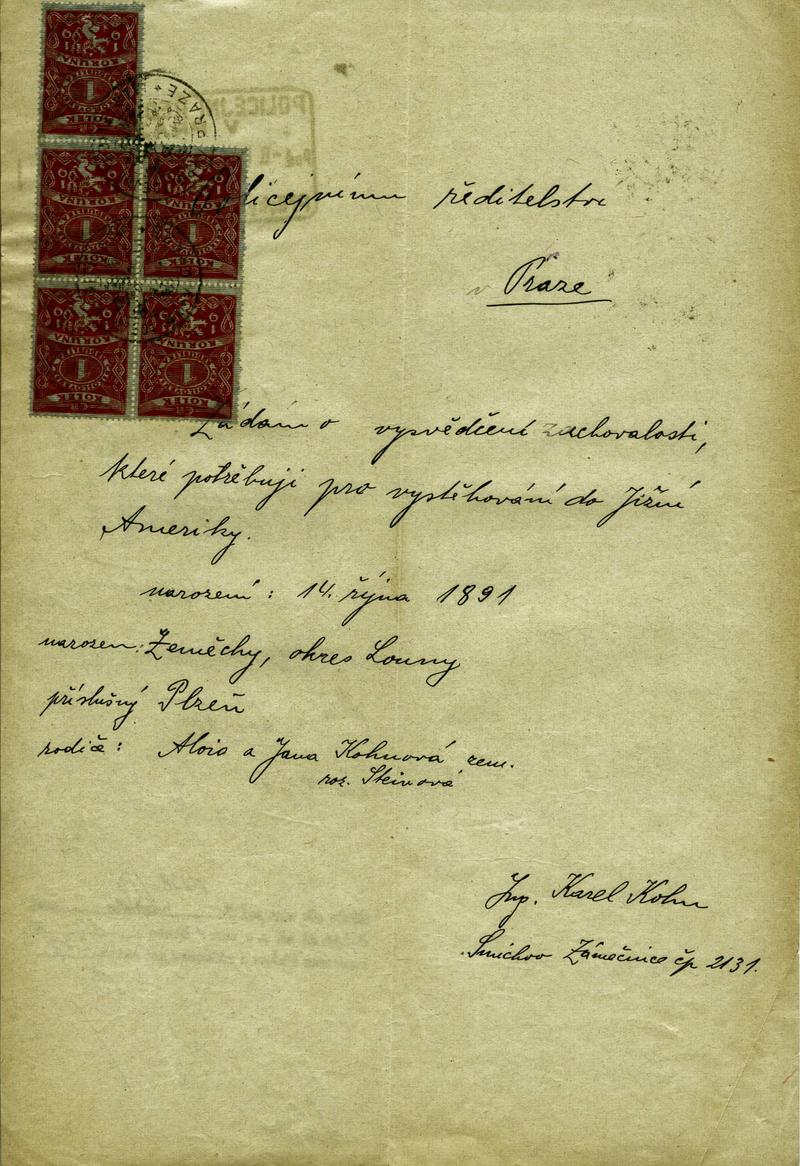 1919
KORUNA
1
KOLEK
POLICEJN
V
PRAZE
Policejnímu ředitelství
v Praze
Žádám o vysvědčení zachovalosti,
které potřebuji pro vystěhování do Jižní
Ameriky.
narození: 14. října 1891
narozen: Žeměchy, okres Louny
příslušný Plzeň
rodiče: Alois a Jana Kohnová zem.
roz. Steinová
Ing. Karel Kohn
Smíchov Zámečnice čp 2131.